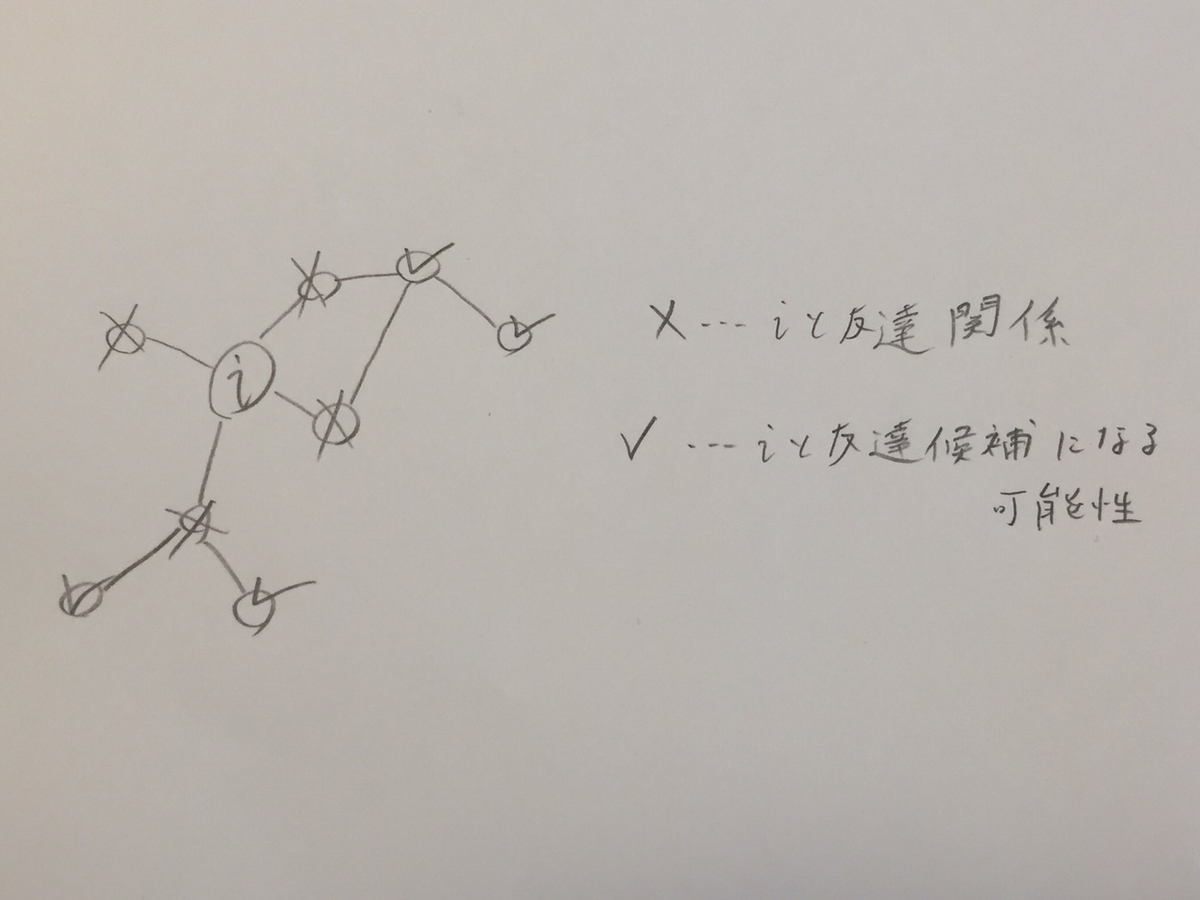 i
× ... iと友達関係
✓ ... iと友達候補になる
可能性